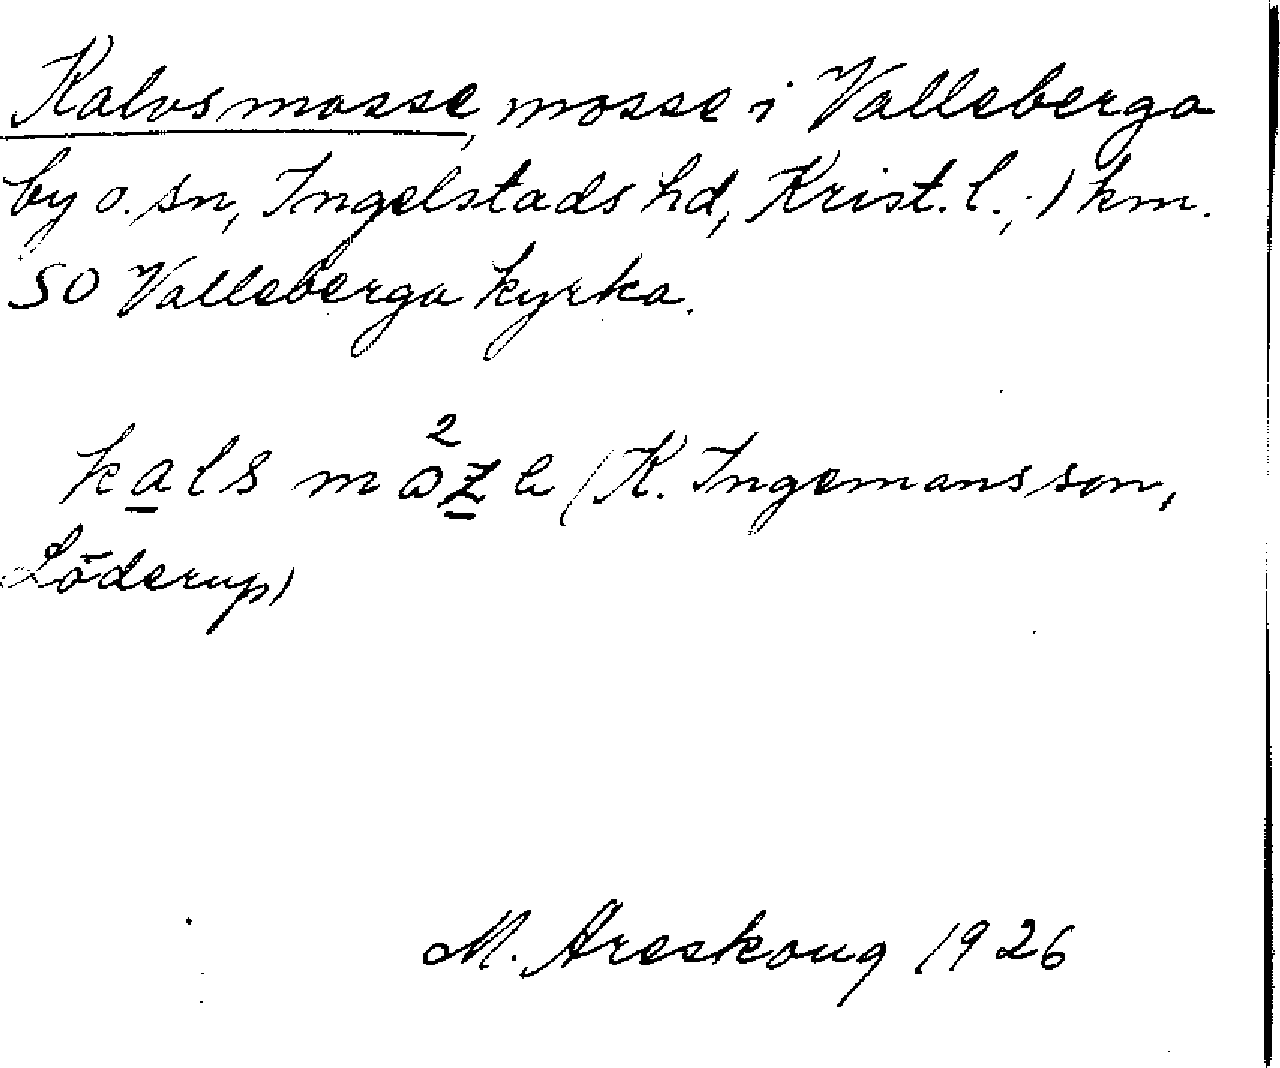 Kalvsmosse, mosse i Valleberga
by o. sn, Ingelstads hd, Krist. l.; 1 km.
SO Valleberga kyrka.
kals må²ze (K. Ingemansson,
Löderup)
M. Areskoug 1926